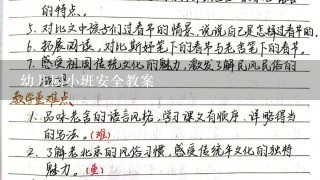 的特点。
5. 对比文中孩子们过春节的情景,说说自己是怎样过春节的。
6. 拓展阅读,对比斯好笔下的春节与老舍笔下的春节。
7. 感受祖国传统文化的魅力,激发了解民风民俗的
幼儿园小班安全教案
教学重难点
1. 品味老舍的语言风格,学习课文有顺序、详略得当
的写法。(难)
2. 了解老北京的风俗习惯,感受传统年文化的独特
魅力。(重)